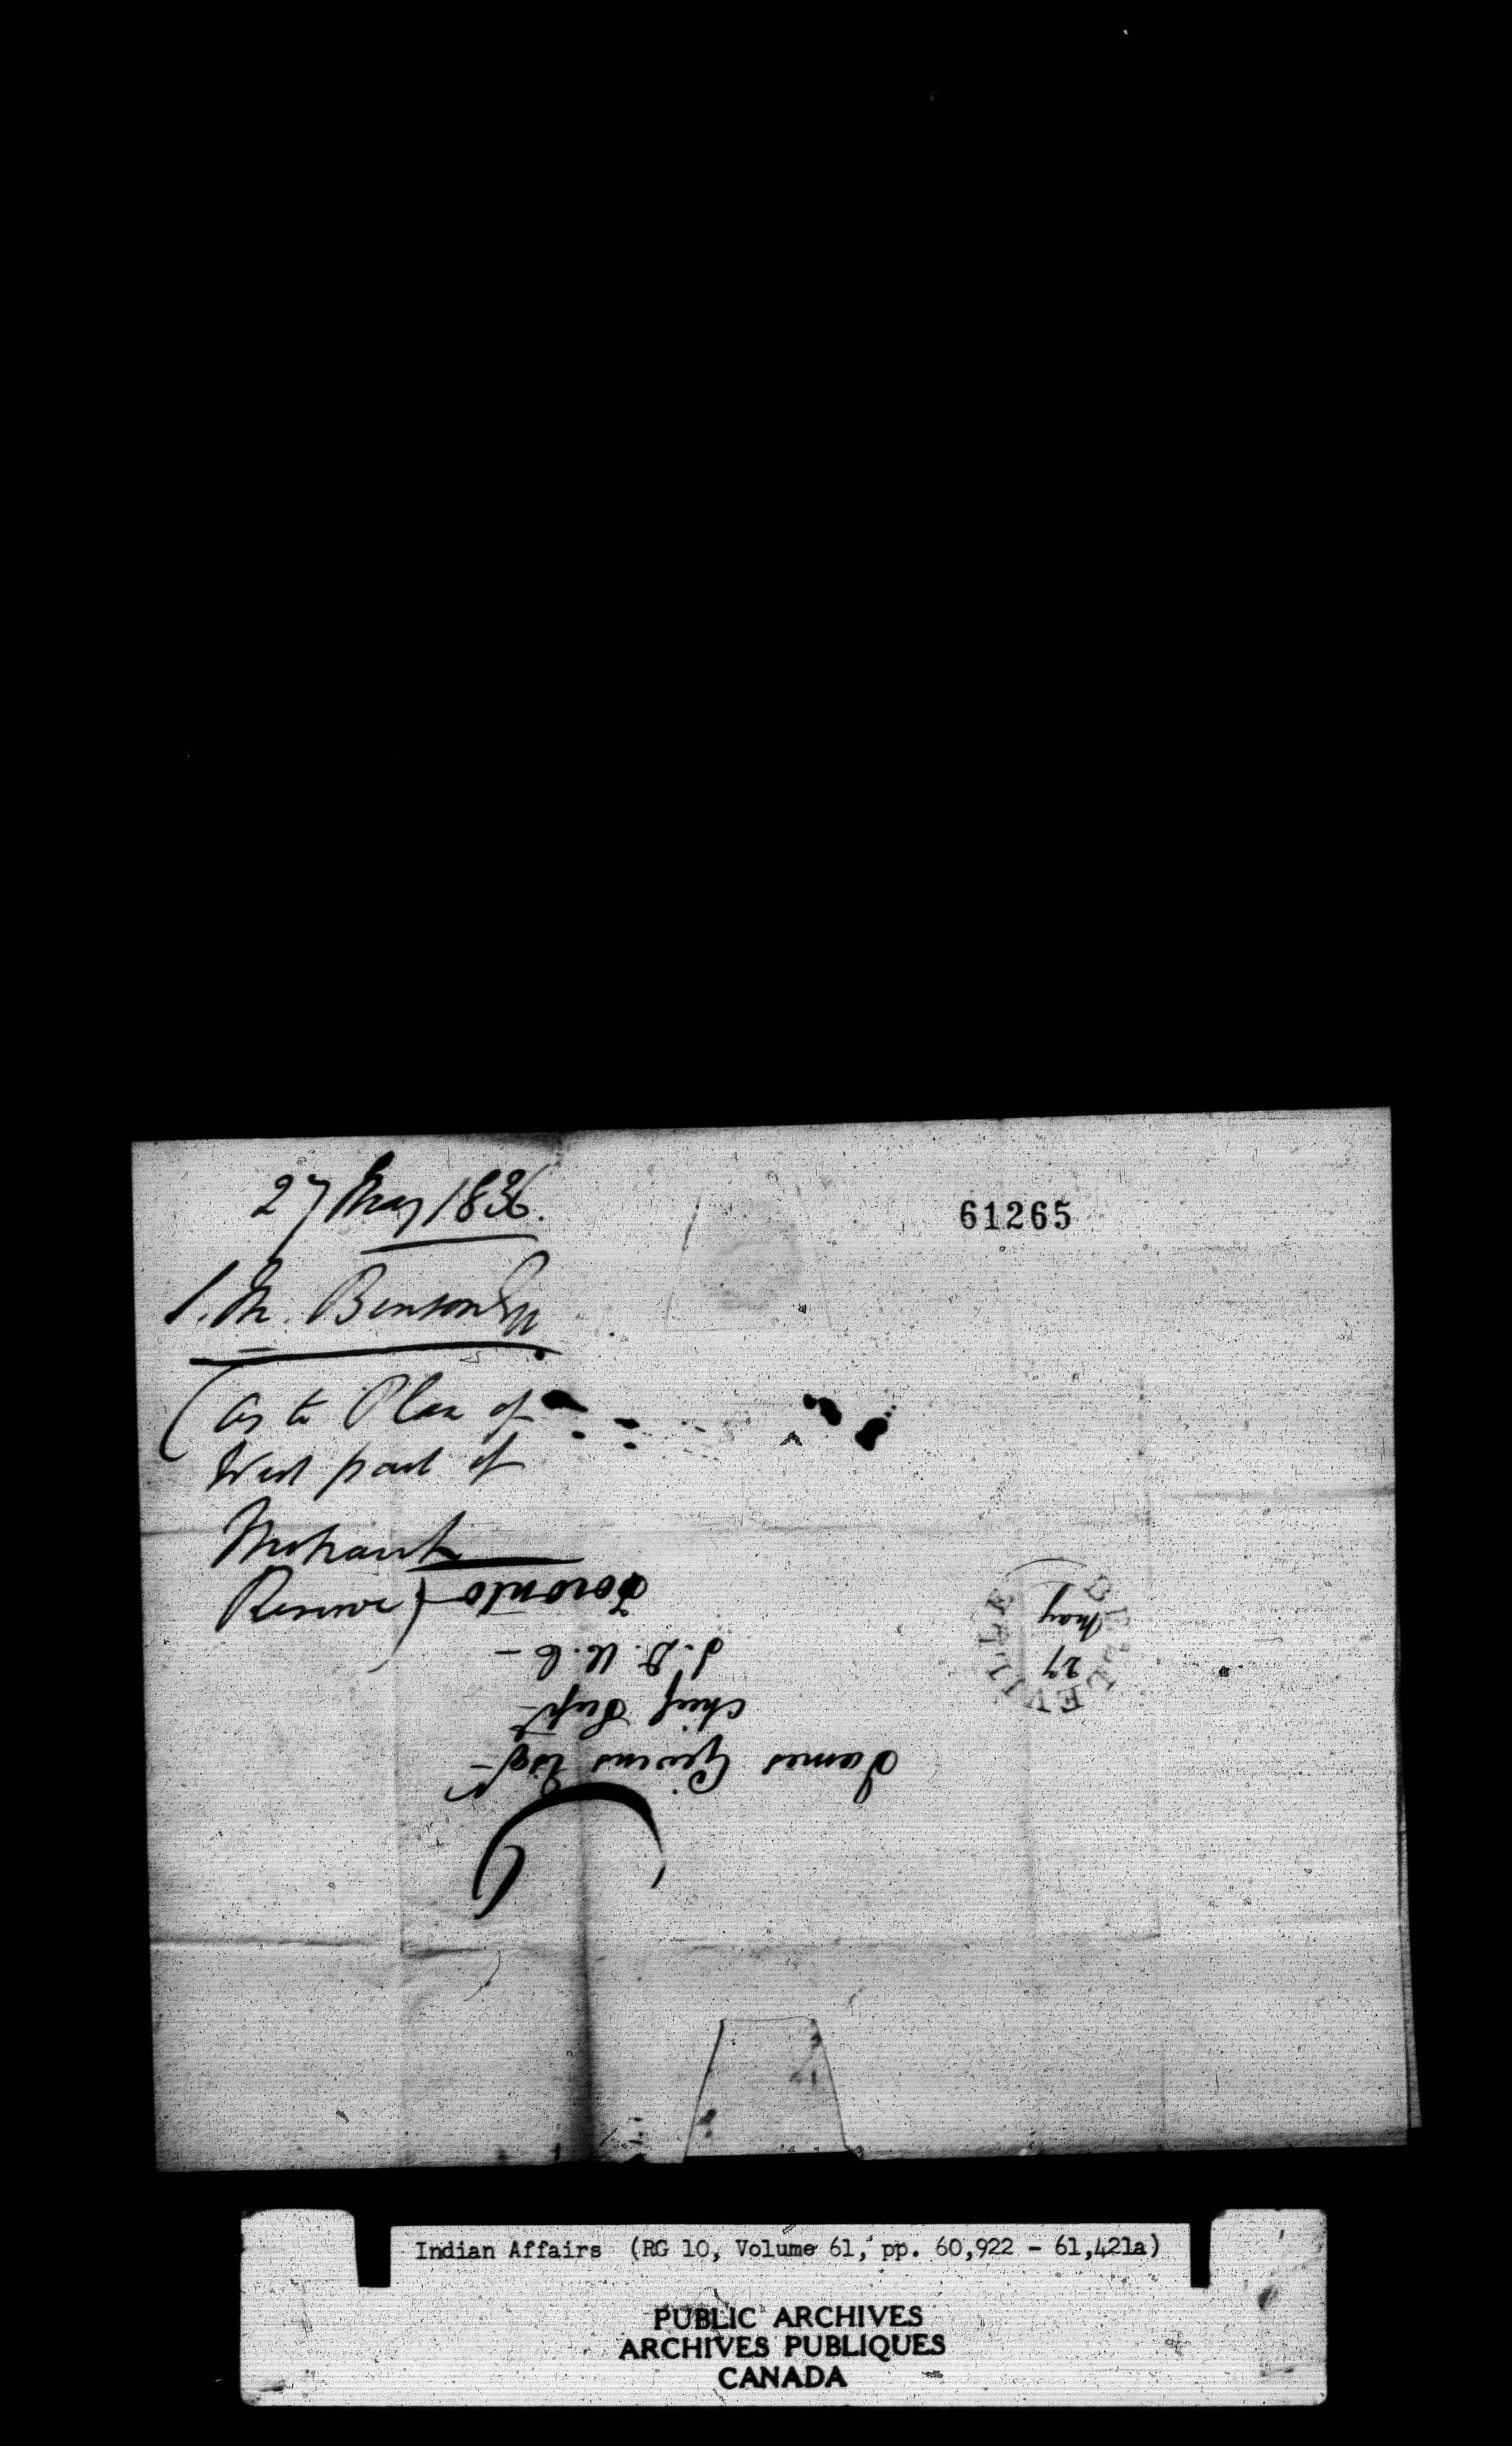 27 May 1836.
61265
S. M. Benson Esq
(as to Plan of
West part of
Mohawk
Reserve)
James Givins Esqr
Chief Supt
I. D. U. C -
Toronto
BELLEVILLE
27
May
Indian Affairs (RG 10, Volume 61, pp. 60,922 - 61,421a)
PUBLIC ARCHIVES
ARCHIVES PUBLIQUES
CANADA